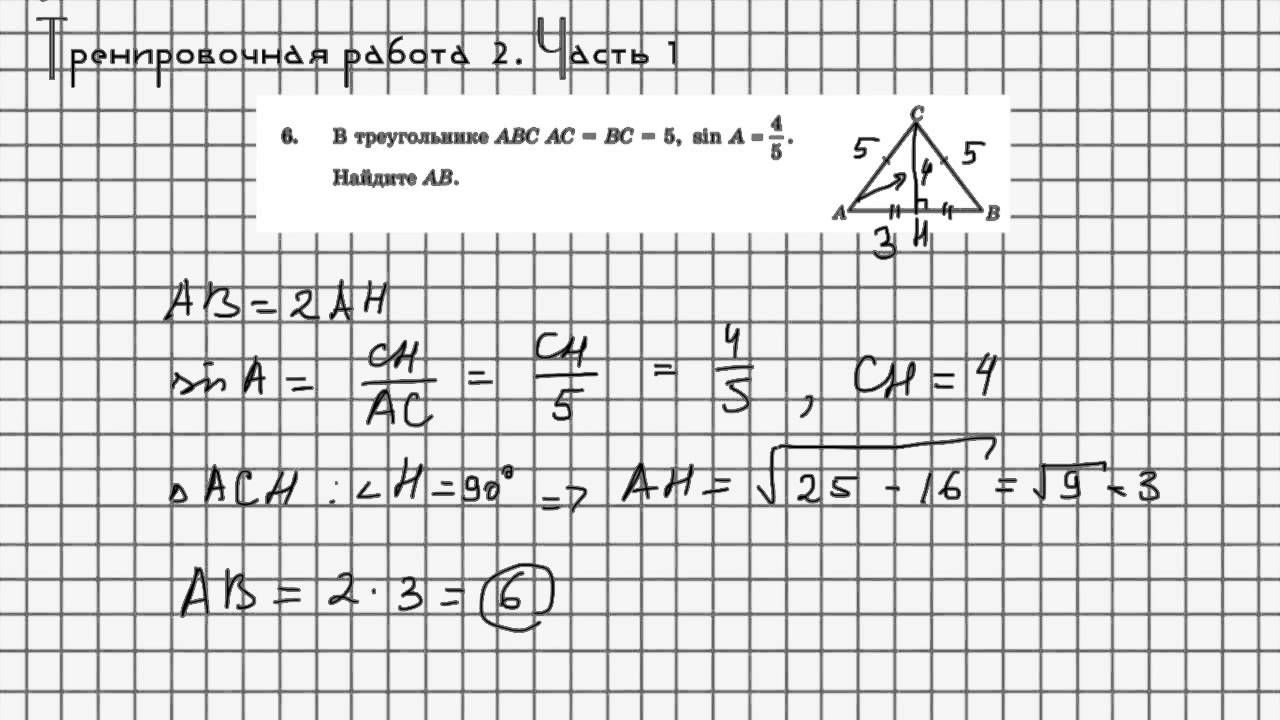 Тренировочная работа 2. Часть 1
6. В треугольнике ABC AC = BC = 5, sin A = 4/5.
Найдите AB.
C
5 4 5
A B
3 H
AB = 2AH
sin A = CH/AC = CH/5 = 4/5, CH = 4
△ ACH : ∠H = 90° => AH = √25 - 16 = √9 = 3
AB = 2 · 3 = 6